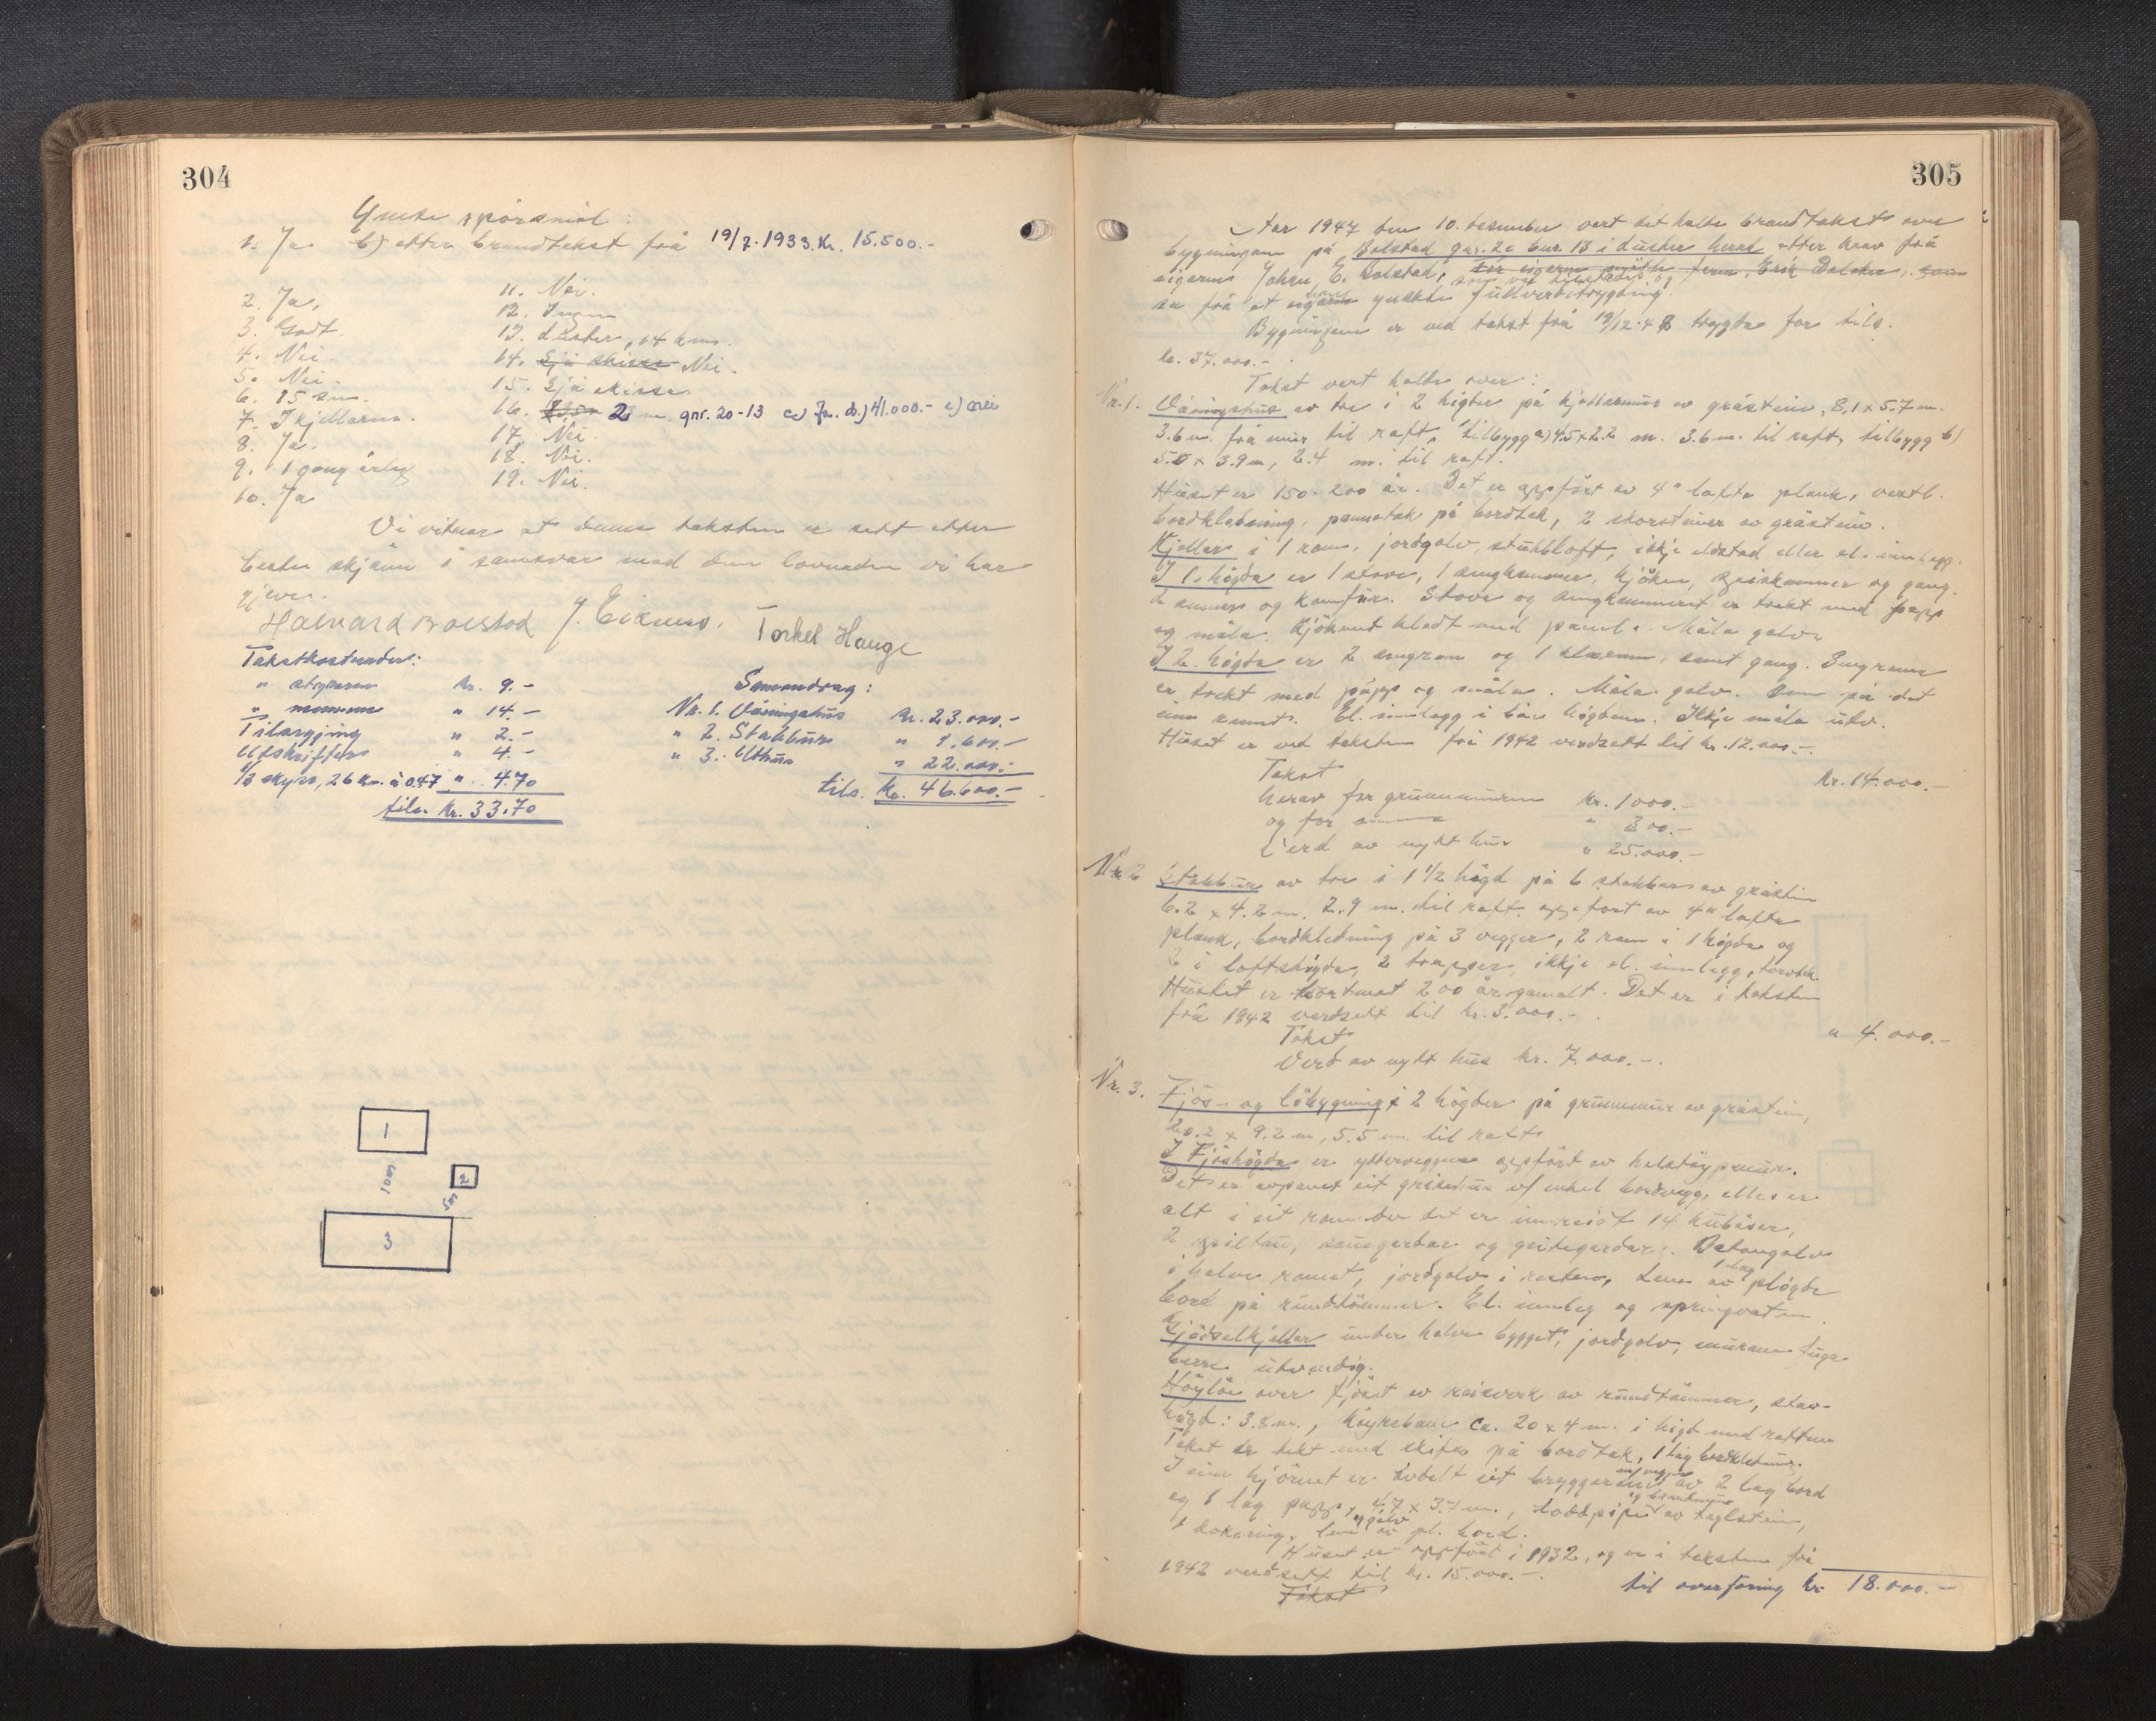 304
Ymse spörsmål:
1. Ja b) etter brandtakst frå 19/7. 1933. Kr. 15.500.-
2. Ja,
3. Godt.
4. Nei.
5. Nei.
6. 15 sm.
7. I kjellaren.
8. Ja.
9. 1 gong årleg
10. Ja
11. Nei.
12. Ingen
13. Luster, 14 km.
14. Sjå skisse Nei.
15. Sjå skisse.
16. 2 m. gnr. 20-13 c) Ja. d.) 41.000.- e) nei
17. Nei.
18. Nei.
19. Nei.
Vi vitner at denne taksten er sett etter
beste skjönn i samsvar med den lovnaden vi har
gjeve.
Halvard Bolstad J. Eikum. Torkel Hauge
Takstkostnader:
" styraren kr. 9.-
" mennene " 14.-
Tilsegjing " 2.-
Utskrifter " 4.-
1/3 skyss, 26 km. à 0.47 " 4.70
tils. kr. 33.70
Samandrag:
Nr. 1. Våningshus kr. 23.000.-
" 2. Stabbur " 1.600.-
" 3. Uthus " 22.000.-
tils. kr. 46.600.-
1
10m
2
5m
3
305
År 1947 den 10. desember vert det halde brandtakst over
bygningane på Bolstad gnr. 20 bnr. 13 i Luster herad etter krav frå
eigaren Johan E. Bolstad, For eigaren mötte fem. Erik Bolstad, som
sa frå at eigaren ynskte fullverditrygding.
Bygningane er ved takst frå 19/12.42 trygda for tils.
kr. 37.000.-
Takst vert halde over:
Nr. 1. Våningshus av tre i 2 högder på kjellarmur av gråstein, 8,1 x 5.7 m.
3.6 m. frå mur til raft, tilbygg a) 4.5 x 2.2 m. 3.6 m. til raft, tilbygg b)
5.5 x 3.9 m, 2.4 m. til raft.
Huset er 150-200 år. Det er oppfört av 4" lafta plank, vertl.
bordkledning, pannetak på bordtak, 2 skorsteiner av gråstein.
Kjellar i 1 rom, jordgolv, stubbloft, ikkje eldstad eller el. innlegg.
I 1. högda er 1 stove, 1 sengkammer, kjöken, spiskammer og gang.
2 omner og komfur. Stove og sengkammeret er trekt med papp
og måla. Kjökenet kledt med panel. Måla golv.
I 2. högda er 2 sengrom og 1 klærom, samt gang. Sengromma
er trekt med papp og måla. Måla golv. Omn på det
eine rommet. El. innlegg i båe högdene. Ikkje måla utv.
Huset er ved taksten frå 1942 verdsett til kr. 12.000.-
Takst kr. 14.000.-
herav for grunnmuren kr. 1000.-
og for omnene " 300.-
Verd av nytt hus " 25.000.-
Nr. 2 Stabbur av tre i 1 1/2 högd på 6 stabbar av gråstein
6.2 x 4.2 m. 2.9 m. til raft. oppfört av 4" lafta
plank, bordkledning på 3 vegger, 2 rom i 1 högda og
2 i loftshögda, 2 trapper, ikkje el. innlegg, torvtak.
Huset er bortmot 200 år gamalt. Det er i taksten
frå 1942 verdsett til kr. 3.000.-
Takst " 4.000.-
Verd av nytt hus kr. 7.000.-.
Nr. 3. Fjös- og löbygning i 2 högder på grunnmur av gråstein,
20.2 x 9.2 m, 5.5 m. til raft.
I Fjöshögda er ytterveggene oppfört av halvstöypmur.
Det er avpanet eit grisehus m/ enkel bordvegg, elles er
alt i eit rom der det er innreidt 14 kubåser,
2 spiltau, sauegardar og geitegardar. Betongolv
i halve romet, jordgolv i resten, Lem av 1 lag plögde
bord på rundtömmer. El. innleg og springvatn.
Gjödselkjellar under halve bygget, jordgolv, murane fuga
berre utvendig.
Höylöe over fjöset av reisverk av rundtömmer, stav-
högd: 3.8 m., köyrebane ca. 20 x 4 m. i högd med raften
Taket er tekt med skifer på bordtak, 1 lag bordkledning.
I eine hjörnet er avdelt eit bryggerhus m/ vegger av 2 lag bord
og 1 lag papp, 4.7 x 3.7 m., loddpipe og brandmur av teglstein,
1 kokering, lem og golv av pl. bord.
Huset er oppfört i 1932, og er i taksten frå
1942 verdsett til kr. 15.000.-.
Takst
til overföring kr. 18.000.-